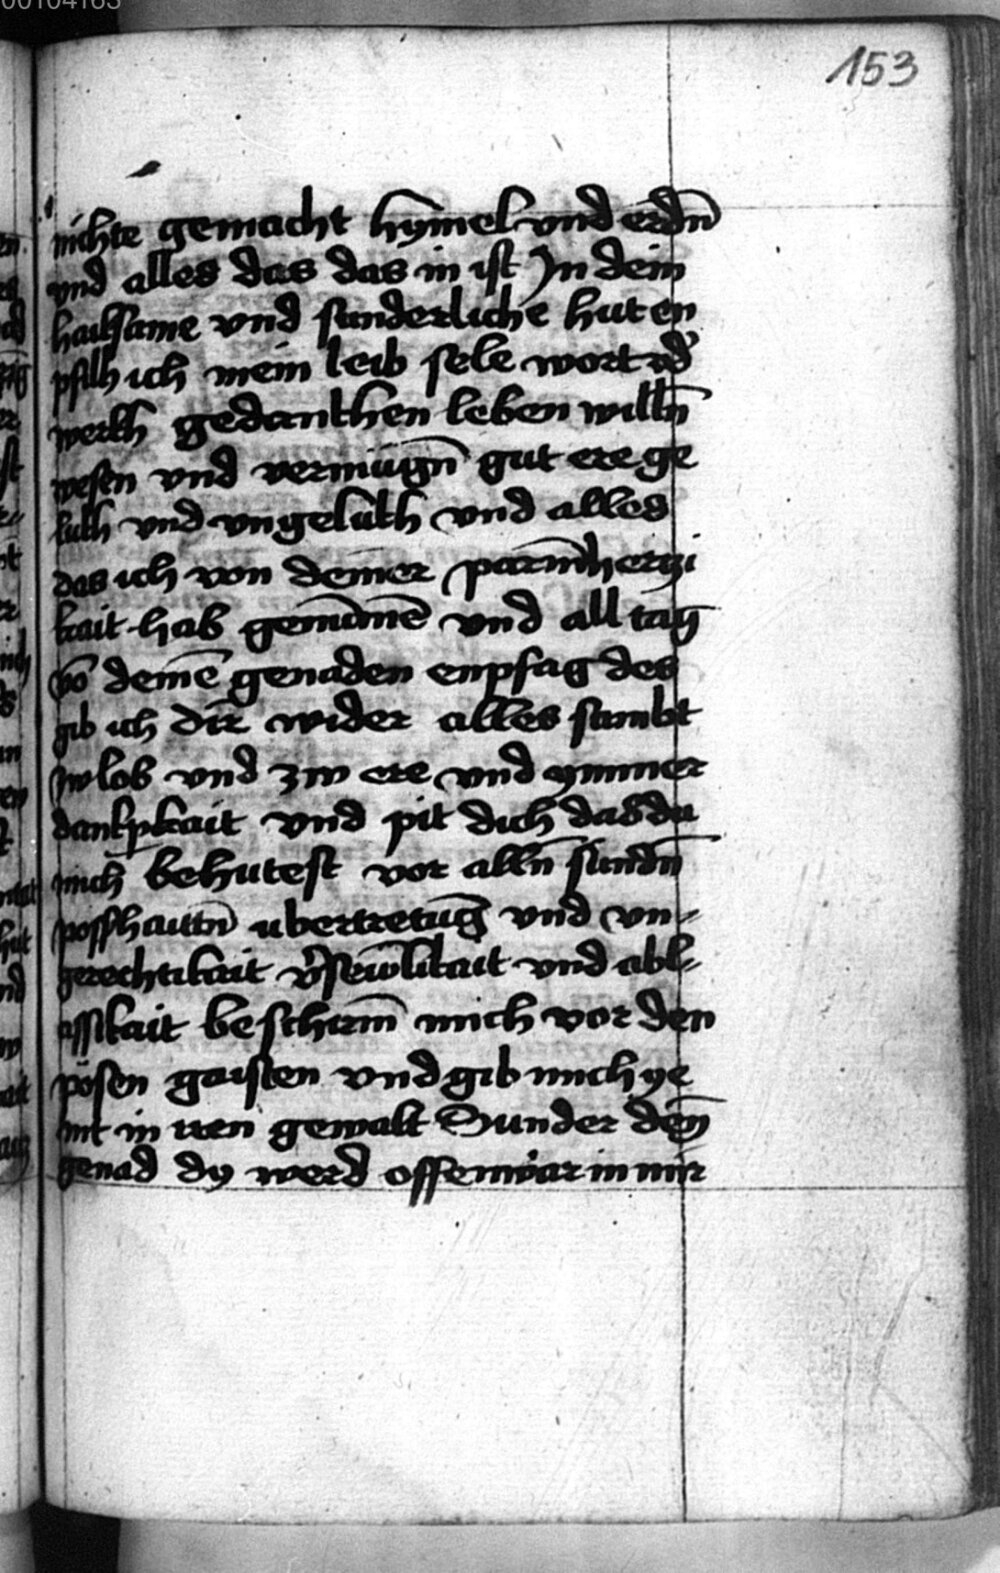 00104163
153
nichte gemacht hȳmel vnd erdn̄
vnd alles das das in ist In dein
hailsame vnd sunderliche hut en
pfilh ich mein leib sele wort vd'
werkh gedankhen leben willn̄
wesen vnd vermügn̄ gut ere ge
lukh vnd vngelukh vnd alles
das ich von deiner parmhertzi
kait hab genūmē vnd all tag
vō deinē genaden enpfag des
gib ich dir wider alles sambt
zw lob vnd zw ere vnd ymmer
dankpkait vnd pit dich das du
mich behutest vor alln̄ sundn̄
posshauttn̄ ubertretūg vnd vn-
gerechtikait vnd abl-
assikait beschirm̄ mich vor den
pösen gaisten vnd gib mich ye
nit in iren gewalt Sunder dein̄
genad dy werd offenwar in mir